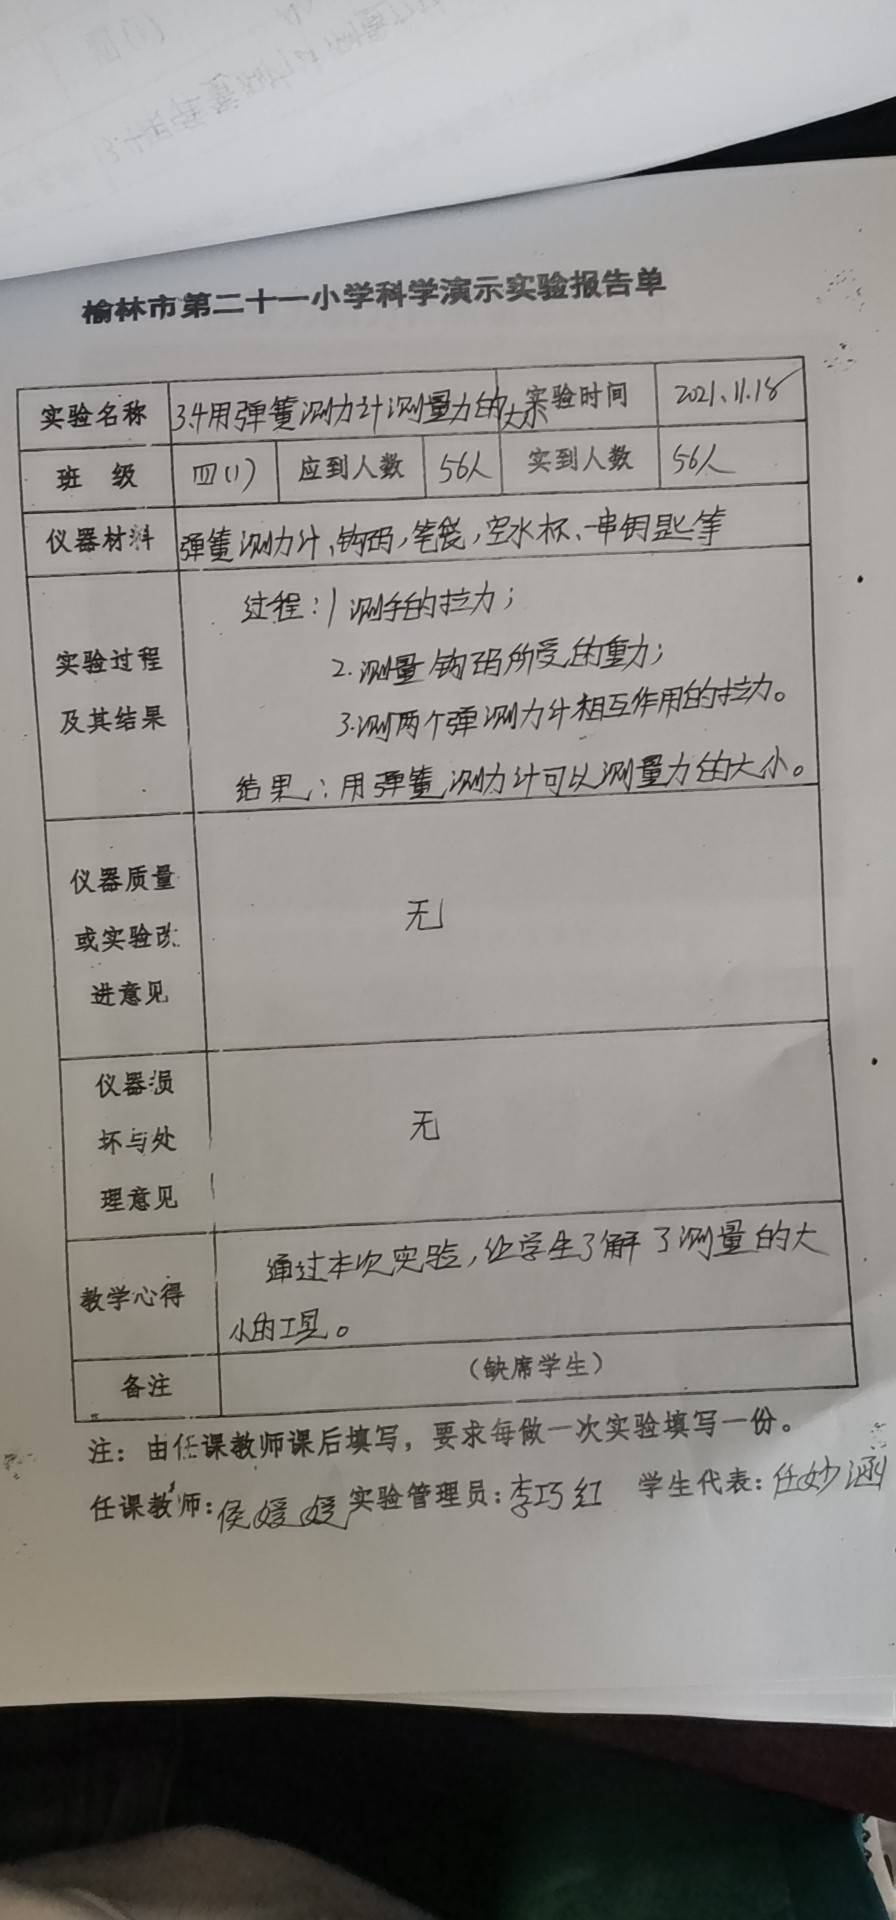 榆林市第二十一小学科学演示实验报告单
实验名称 3.4用弹簧测力计测量力的大小 实验时间 2021.11.18
班 级 四(1) 应到人数 56人 实到人数 56人
仪器材料 弹簧测力计、钩码，笔袋，空水杯、一串钥匙等
过程：1 测手的拉力；
实验过程 2.测量钩码所受的重力；
及其结果 3.测两个弹测力计相互作用的拉力。
结果：用弹簧测力计可以测量力的大小。
仪器质量
或实验改 无
进意见
仪器损
坏与处 无
理意见
通过本次实验，让学生了解了测量的大
教学心得
小的工具。
备注 （缺席学生）
注：由任课教师课后填写，要求每做一次实验填写一份。
任课教师：侯媛媛 实验管理员：李巧红 学生代表：任妙涵